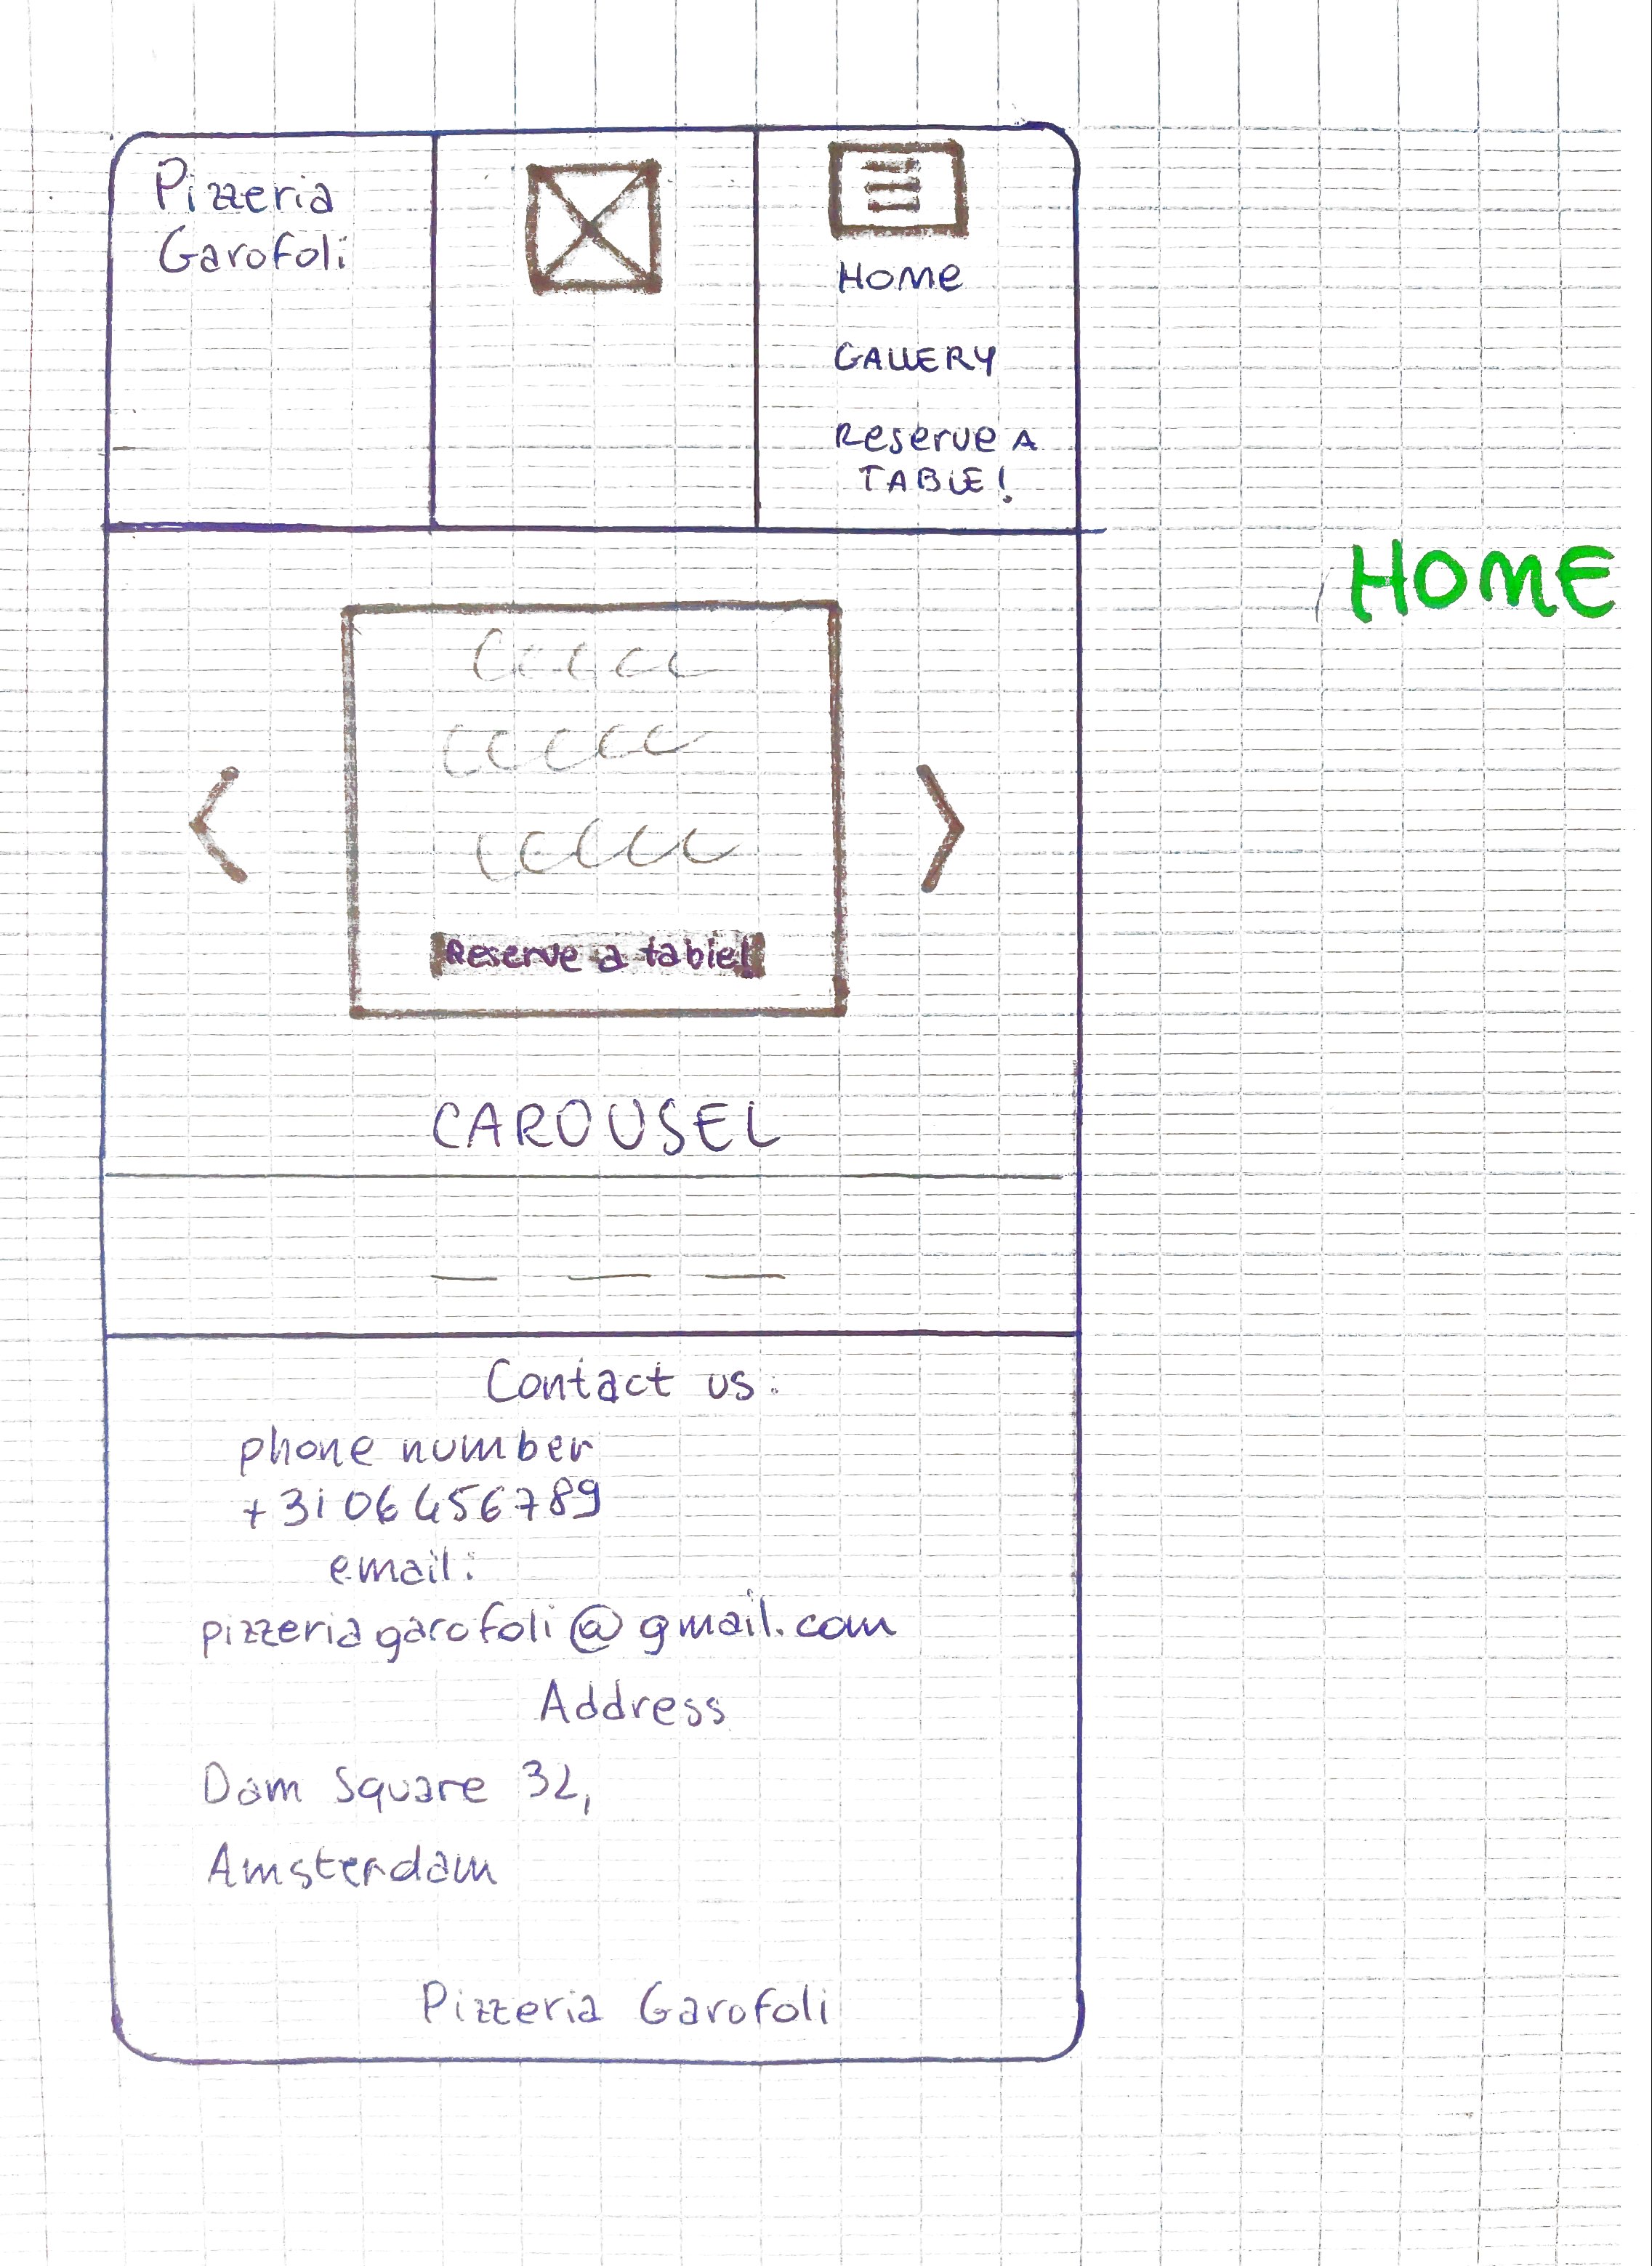 Pizzeria
Garofoli
HOME
GALLERY
Reserve A
TABLE!
HOME
Reserve a table!
CAROUSEL
Contact us:
phone number
+3106456789
email:
pizzeriagarofoli@gmail.com
Address
Dam Square 32,
Amsterdam
Pizzeria Garofoli